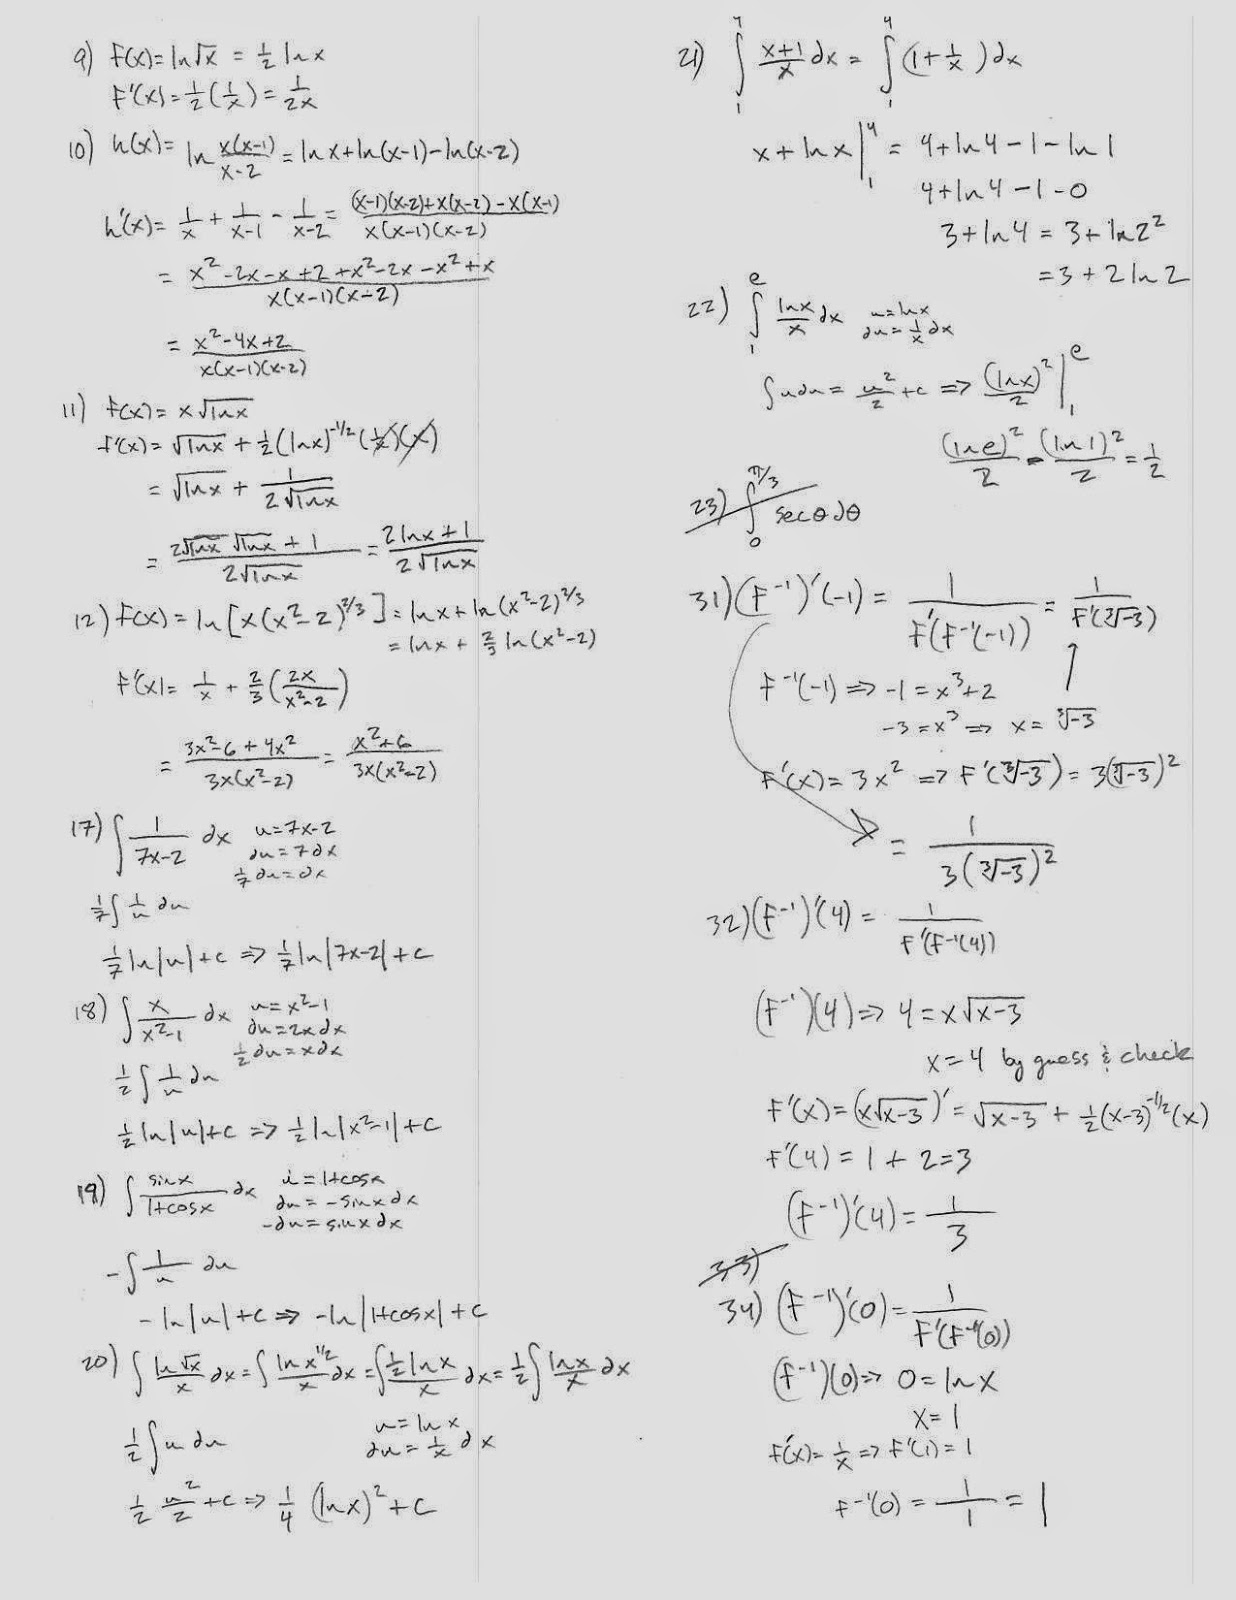 9) f(x) = ln√x = 1/2 ln x
f'(x) = 1/2 (1/x) = 1/2x
10) h(x) = ln x(x-1)/x-2 = ln x + ln(x-1) - ln(x-2)
h'(x) = 1/x + 1/x-1 - 1/x-2 = (x-1)(x-2)+x(x-2)-x(x-1)/x(x-1)(x-2)
= x²-2x-x+2+x²-2x-x²+x/x(x-1)(x-2)
= x²-4x+2/x(x-1)(x-2)
11) f(x) = x√ln x
f'(x) = √ln x + 1/2 (ln x)^-1/2 (1/x)(x)
= √ln x + 1/2√ln x
= 2√ln x √ln x + 1/2√ln x = 2 ln x + 1/2√ln x
12) f(x) = ln[x(x²-2)^2/3] = ln x + ln(x²-2)^2/3
= ln x + 2/3 ln(x²-2)
f'(x) = 1/x + 2/3 (2x/x²-2)
= 3x²-6+4x²/3x(x²-2) = x²+6/3x(x²-2)
17) ∫ 1/7x-2 dx u = 7x-2
du = 7dx
1/7 du = dx
1/7 ∫ 1/u du
1/7 ln|u| + c => 1/7 ln|7x-2| + c
18) ∫ x/x²-1 dx u = x²-1
du = 2x dx
1/2 du = x dx
1/2 ∫ 1/u du
1/2 ln|u| + c => 1/2 ln|x²-1| + c
19) ∫ sin x/1+cos x dx i = 1+cos x
du = -sin x dx
-du = sin x dx
-∫ 1/u du
-ln|u| + c => -ln|1+cos x| + c
20) ∫ ln√x/x dx = ∫ ln x^1/2/x dx = ∫ 1/2 ln x/x dx = 1/2 ∫ ln x/x dx
u = ln x
1/2 ∫ u du du = 1/x dx
1/2 u²/2 + c => 1/4 (ln x)² + c
21) ∫₁⁴ x+1/x dx = ∫₁⁴ (1 + 1/x) dx
x + ln x |₁⁴ = 4 + ln 4 - 1 - ln 1
4 + ln 4 - 1 - 0
3 + ln 4 = 3 + ln 2²
= 3 + 2 ln 2
22) ∫₁ᵉ ln x/x dx u = ln x
du = 1/x dx
∫ u du = u²/2 + c => (ln x)²/2 |₁ᵉ
(ln e)²/2 - (ln 1)²/2 = 1/2
23) ∫₀^π/3 sec θ dθ
31) (f⁻¹)'(-1) = 1/f'(f⁻¹(-1)) = 1/f'(∛-3)
f⁻¹(-1) => -1 = x³+2
-3 = x³ => x = ∛-3
f'(x) = 3x² => f'(∛-3) = 3(∛-3)²
= 1/3(∛-3)²
32) (f⁻¹)'(4) = 1/f'(f⁻¹(4))
(f⁻¹)(4) => 4 = x√x-3
x = 4 by guess & check
f'(x) = (x√x-3)' = √x-3 + 1/2 (x-3)^-1/2 (x)
f'(4) = 1 + 2 = 3
(f⁻¹)'(4) = 1/3
33)
34) (f⁻¹)'(0) = 1/f'(f⁻¹(0))
(f⁻¹)(0) => 0 = ln x
x = 1
f'(x) = 1/x => f'(1) = 1
f⁻¹(0) = 1/1 = 1